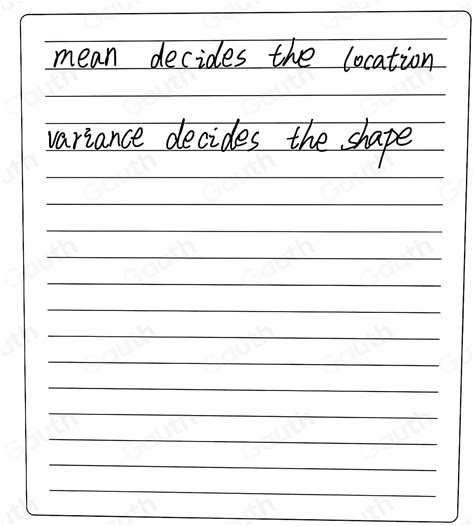 mean decides the location
variance decides the shape